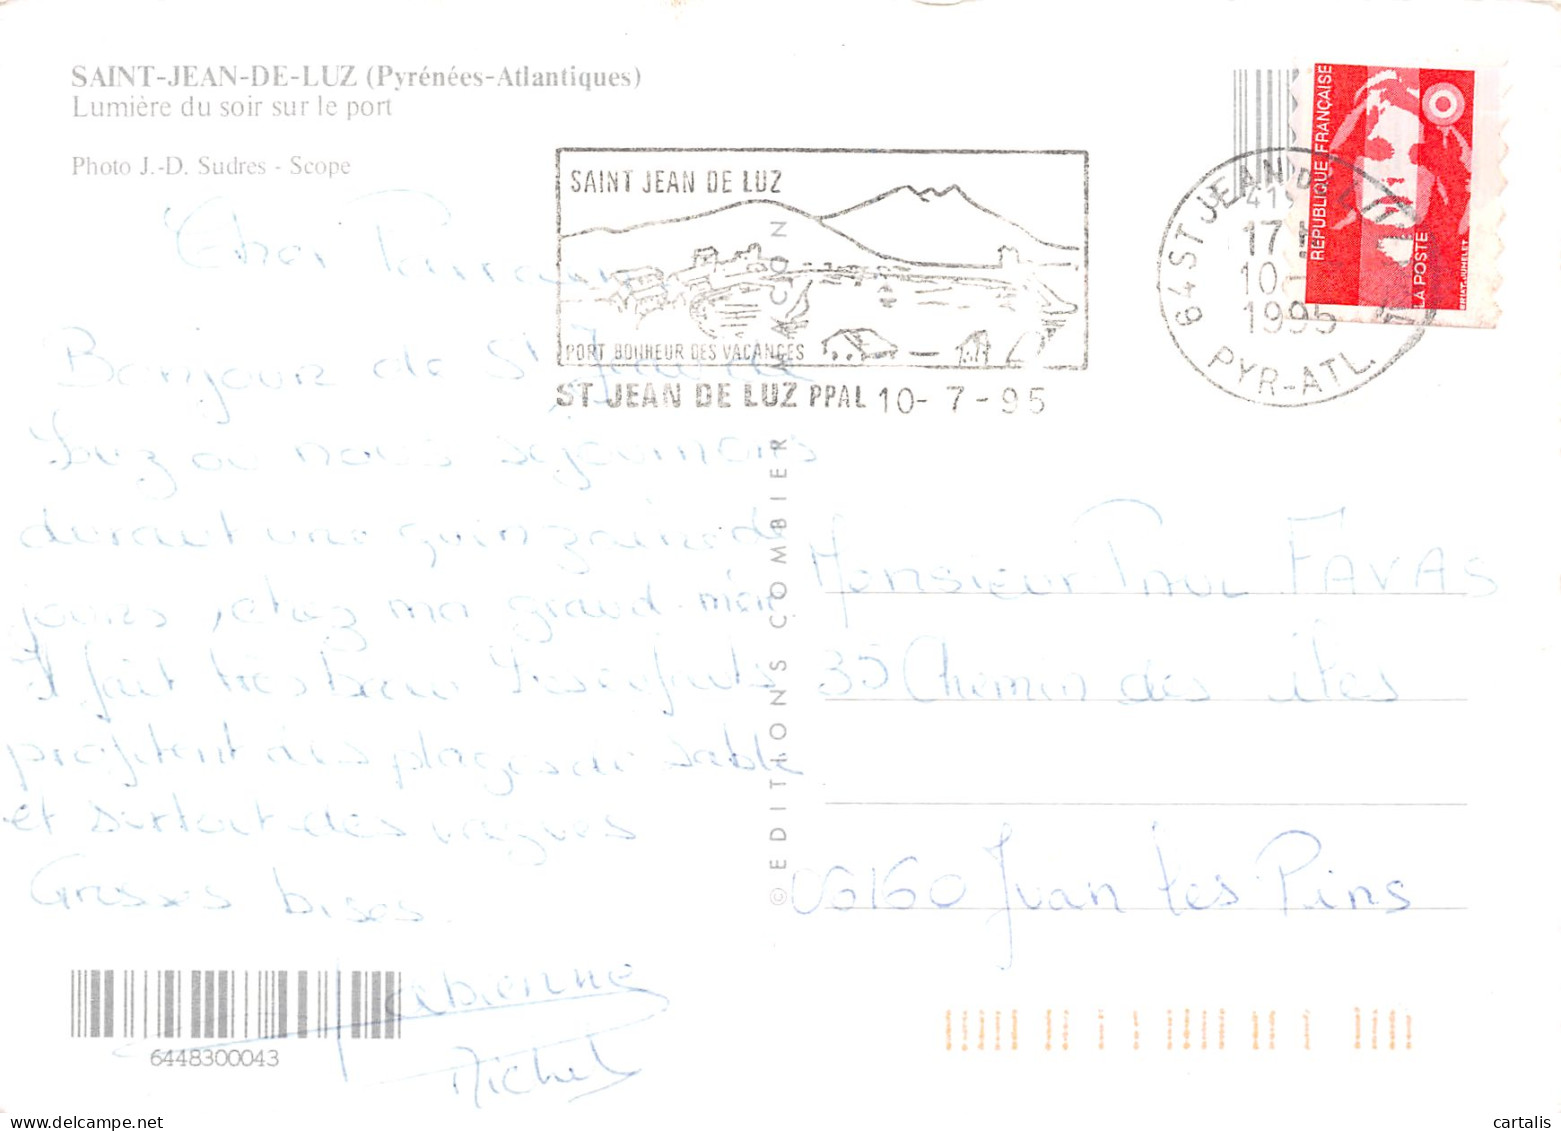 SAINT-JEAN-DE-LUZ (Pyrénées-Atlantiques)
Lumière du soir sur le port
Photo J.-D. Sudres - Scope
Cher Parrain
Bonjour de St Jean de
Luz ou nous séjournons
durant une quinzaine de
jours, chez ma grand-mère
Il fait très beau Les enfants
profitent des plages de sable
et surtout des vagues
Grosses bises.
Fabienne
Michel
6448300043
SAINT JEAN DE LUZ
PORT BONHEUR DES VACANCES
ST JEAN DE LUZ PPAL 10-7-95
© EDITIONS COMBIER MACON
64 ST JEAN DE LUZ
17
10
1995
PYR-ATL.
RÉPUBLIQUE FRANÇAISE
LA POSTE
BRIAT-JUMELET
Monsieur Paul FAVAS
35 Chemin des iles
06160 Juan Les Pins
cartalis